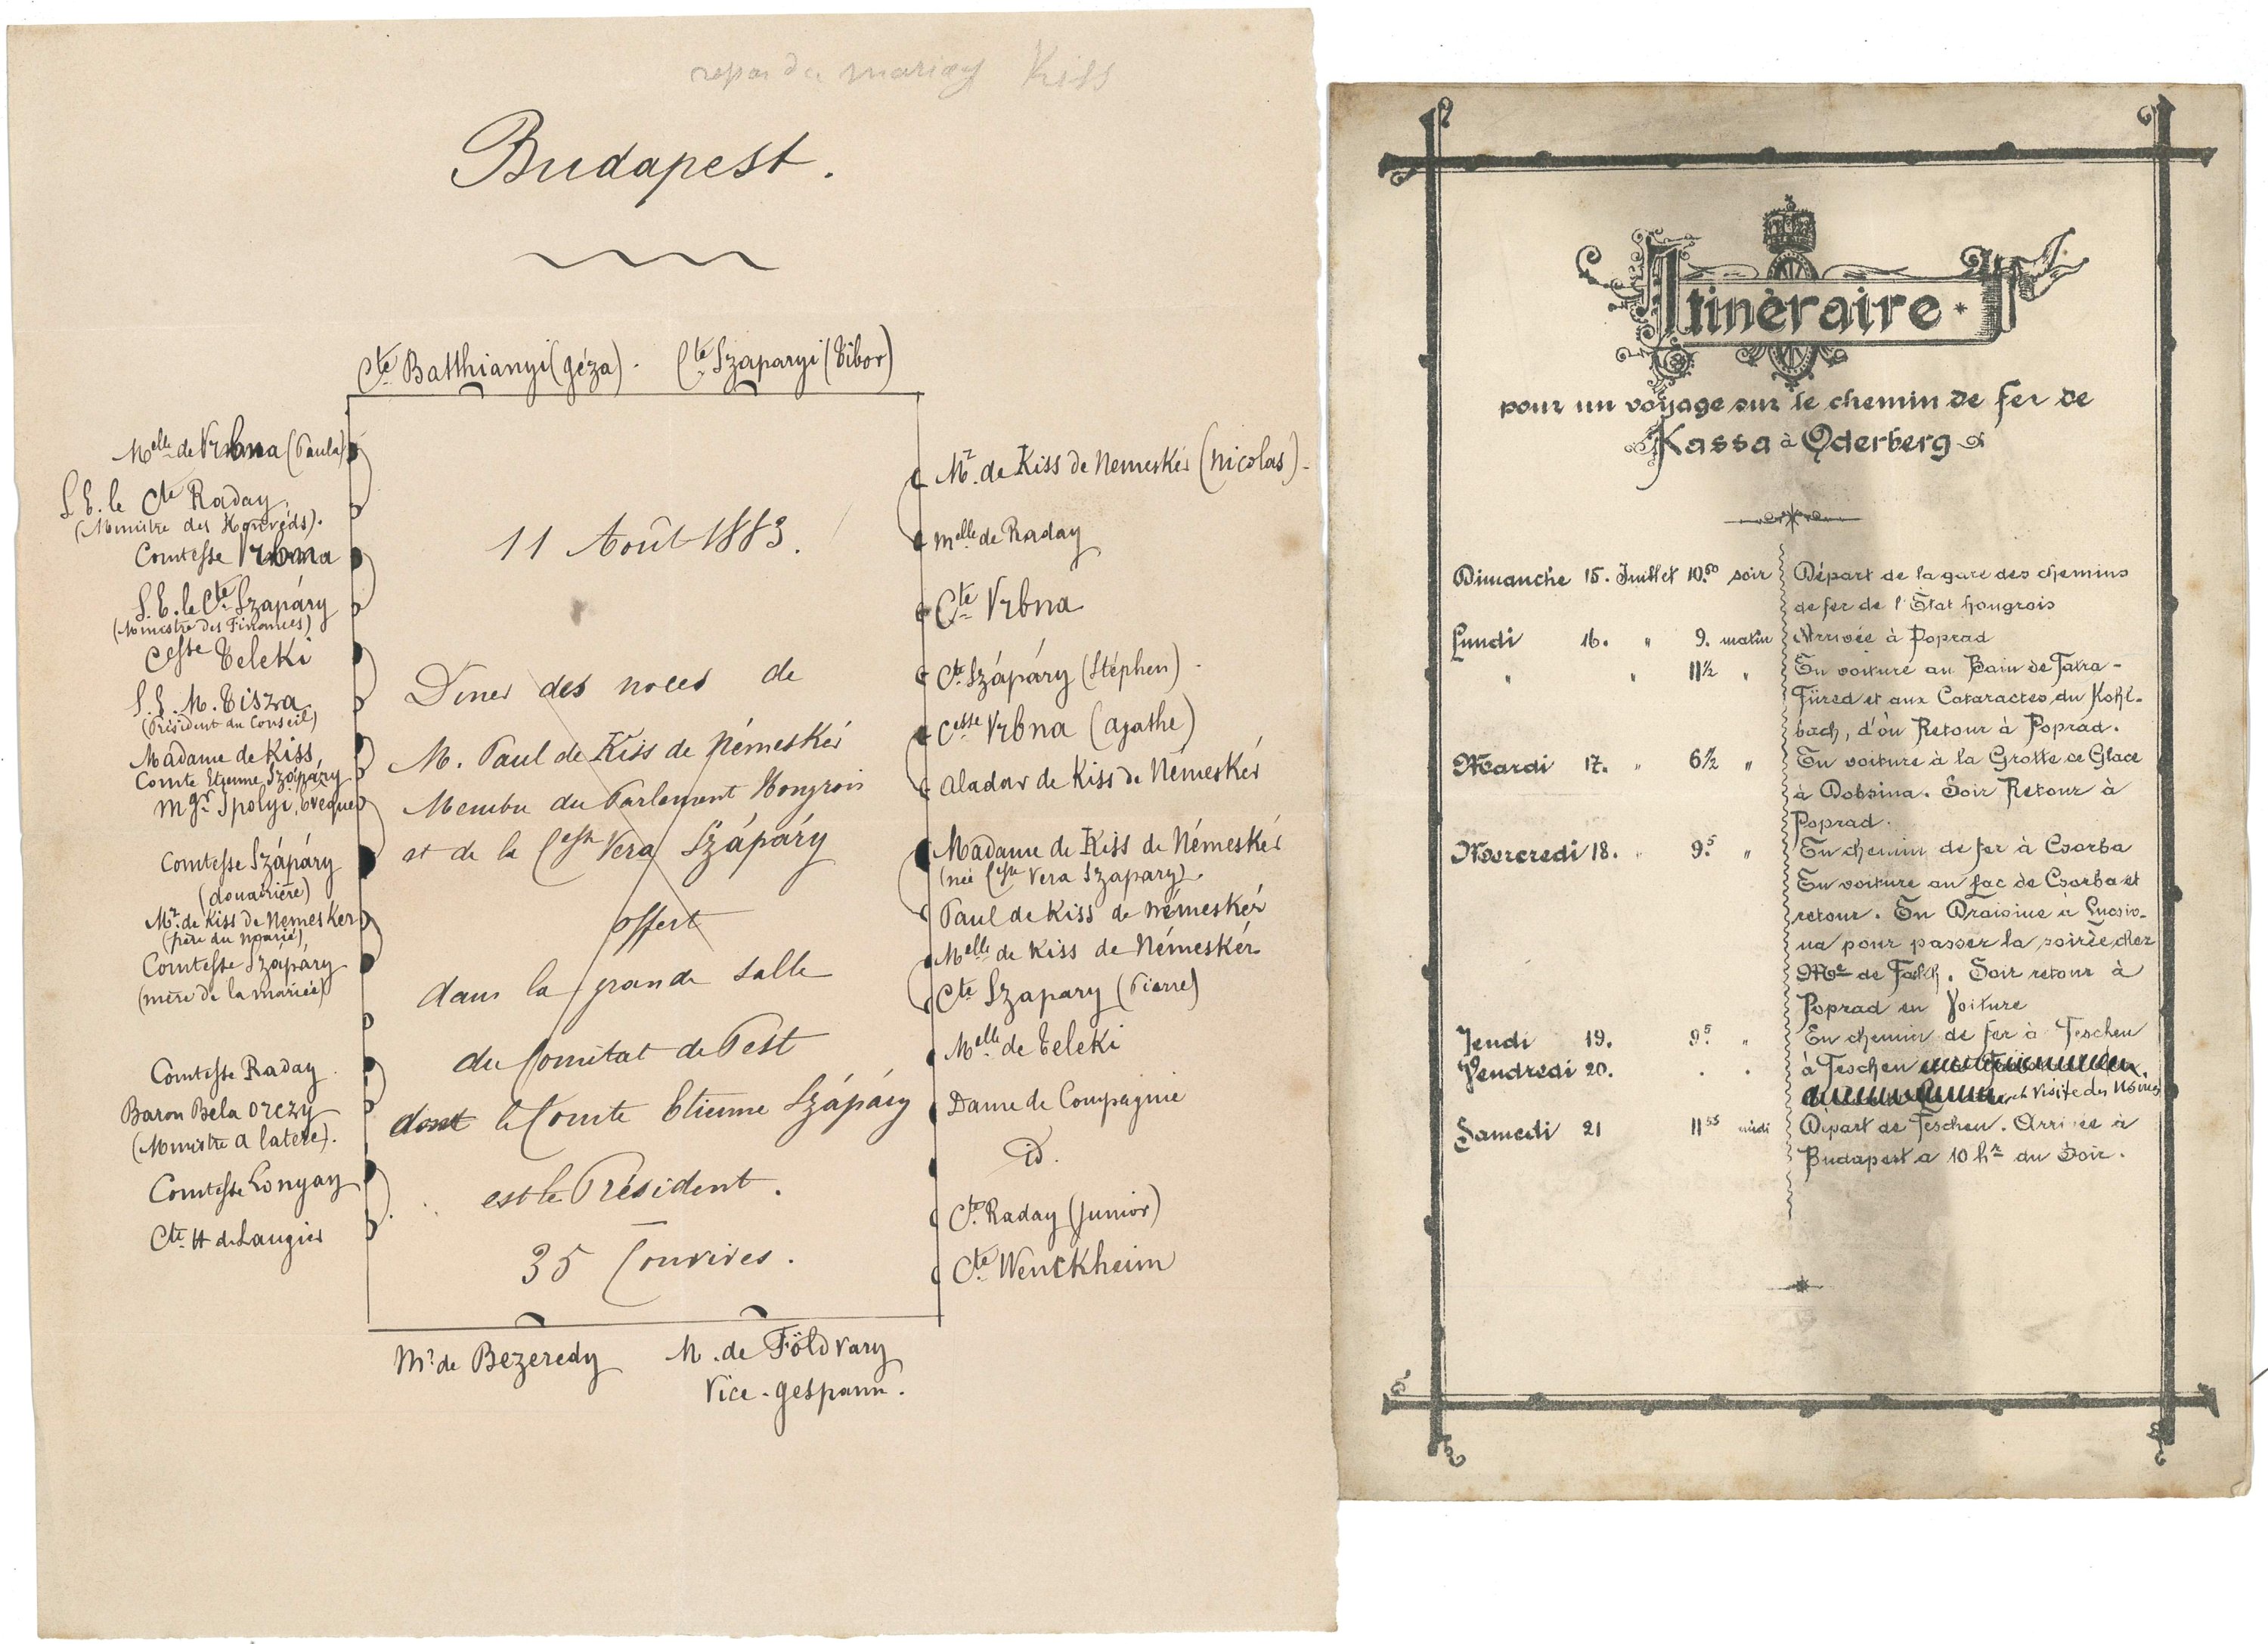 repas du mariage Kiss
Budapest.
Cte Batthianyi (géza). Cte Szaparyi (Tibor)
Melle de Vrbna (Paula)
S. E. le Cte Raday,
(Ministre des Honvéds).
Comtesse Vrbna
S. E. le Cte Szapáry
(Ministre des Finances)
Cesse Teleki
S. E. M. Tisza
(Président du Conseil)
Madame de Kiss,
Comte Etienne Szápáry
Mgr Ipolyi, évêque
Comtesse Szápáry
(douairière)
Mr. de Kiss de Nemesker
(père du marié)
Comtesse Szápáry
(mère de la mariée)
Comtesse Raday
Baron Bela Orczy
(Ministre a latere).
Comtesse Lonyay
Cte H de Laugier
11 Août 1883.
Diner des noces de
M. Paul de Kiss de Némeskér
Membre du Parlement Hongrois
et de la Cesse Vera Szápáry
offert
dans la grande salle
du Comitat de Pest
dont le Comte Etienne Szápáry
est le Président.
35 Convives.
Mr. de Kiss de Nemeskér (Nicolas).
Melle de Raday
Cte Vrbna
Cte Szápáry (Stéphen).
Cesse Vrbna (Agathe)
Aladar de Kiss de Némeskér
Madame de Kiss de Némeskér
(née Cesse Vera Szapary).
Paul de Kiss de Némeskér
Melle de Kiss de Némeskér
Cte Szapary (Pierre)
Melle de Teleki
Dame de Compagnie
id.
Cte Raday (Junior)
Cte Wenckheim
Mr de Bezeredy M. de Földvary
Vice-gespann.
Itinèraire
pour un voyage sur le chemin de fer de
Kassa à Oderberg
Dimanche 15. Juillet 10.50 soir Départ de la gare des chemins
de fer de l'Etat hongrois
Lundi 16. " 9. matin Arrivée à Poprad
" " 11½ " En voiture au Bain de Tatra-
Füred et aux Cataractes du Kohl-
bach, d'où Retour à Poprad.
Mardi 17. " 6½ " En voiture à la Grotte de Glace
à Dobsina. Soir Retour à
Poprad.
Mercredi 18. " 9.5 " En chemin de fer à Csorba
En voiture au Lac de Csorba et
retour. En Draisine à Lucsiv-
na pour passer la soirée chez
Mr de . Soir retour à
Poprad en Voiture
Jeudi 19. 9.5 " En chemin de fer à Teschen
Vendredi 20. . . à Teschen
Visite des Usines
Samedi 21 11 55 midi Départ de Teschen. Arrivée à
Budapest a 10 hr du Soir.